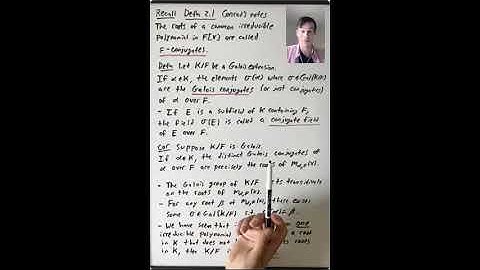 Recall Defn 2.1 Conrad's notes
The roots of a common irreducible
polynomial in F[x] are called
F-conjugates.
Defn Let K/F be a Galois extension.
If α∈K, the elements σ(α) where σ∈Gal(K/F)
are the Galois conjugates (or just conjugates)
of α over F.
- If E is a subfield of K containing F,
the field σ(E) is called a conjugate field
of E over F.
Cor Suppose K/F is Galois.
If α∈K, the distinct Galois conjugates of
α over F are precisely the roots of
- The Galois group of K/F acts transitively
on the roots of
- For any root β of there exists
some σ∈Gal(K/F) s.t. = β.
- We have seen that one
irreducible polynomial a root
in K that does not roots
in K, then K/F is